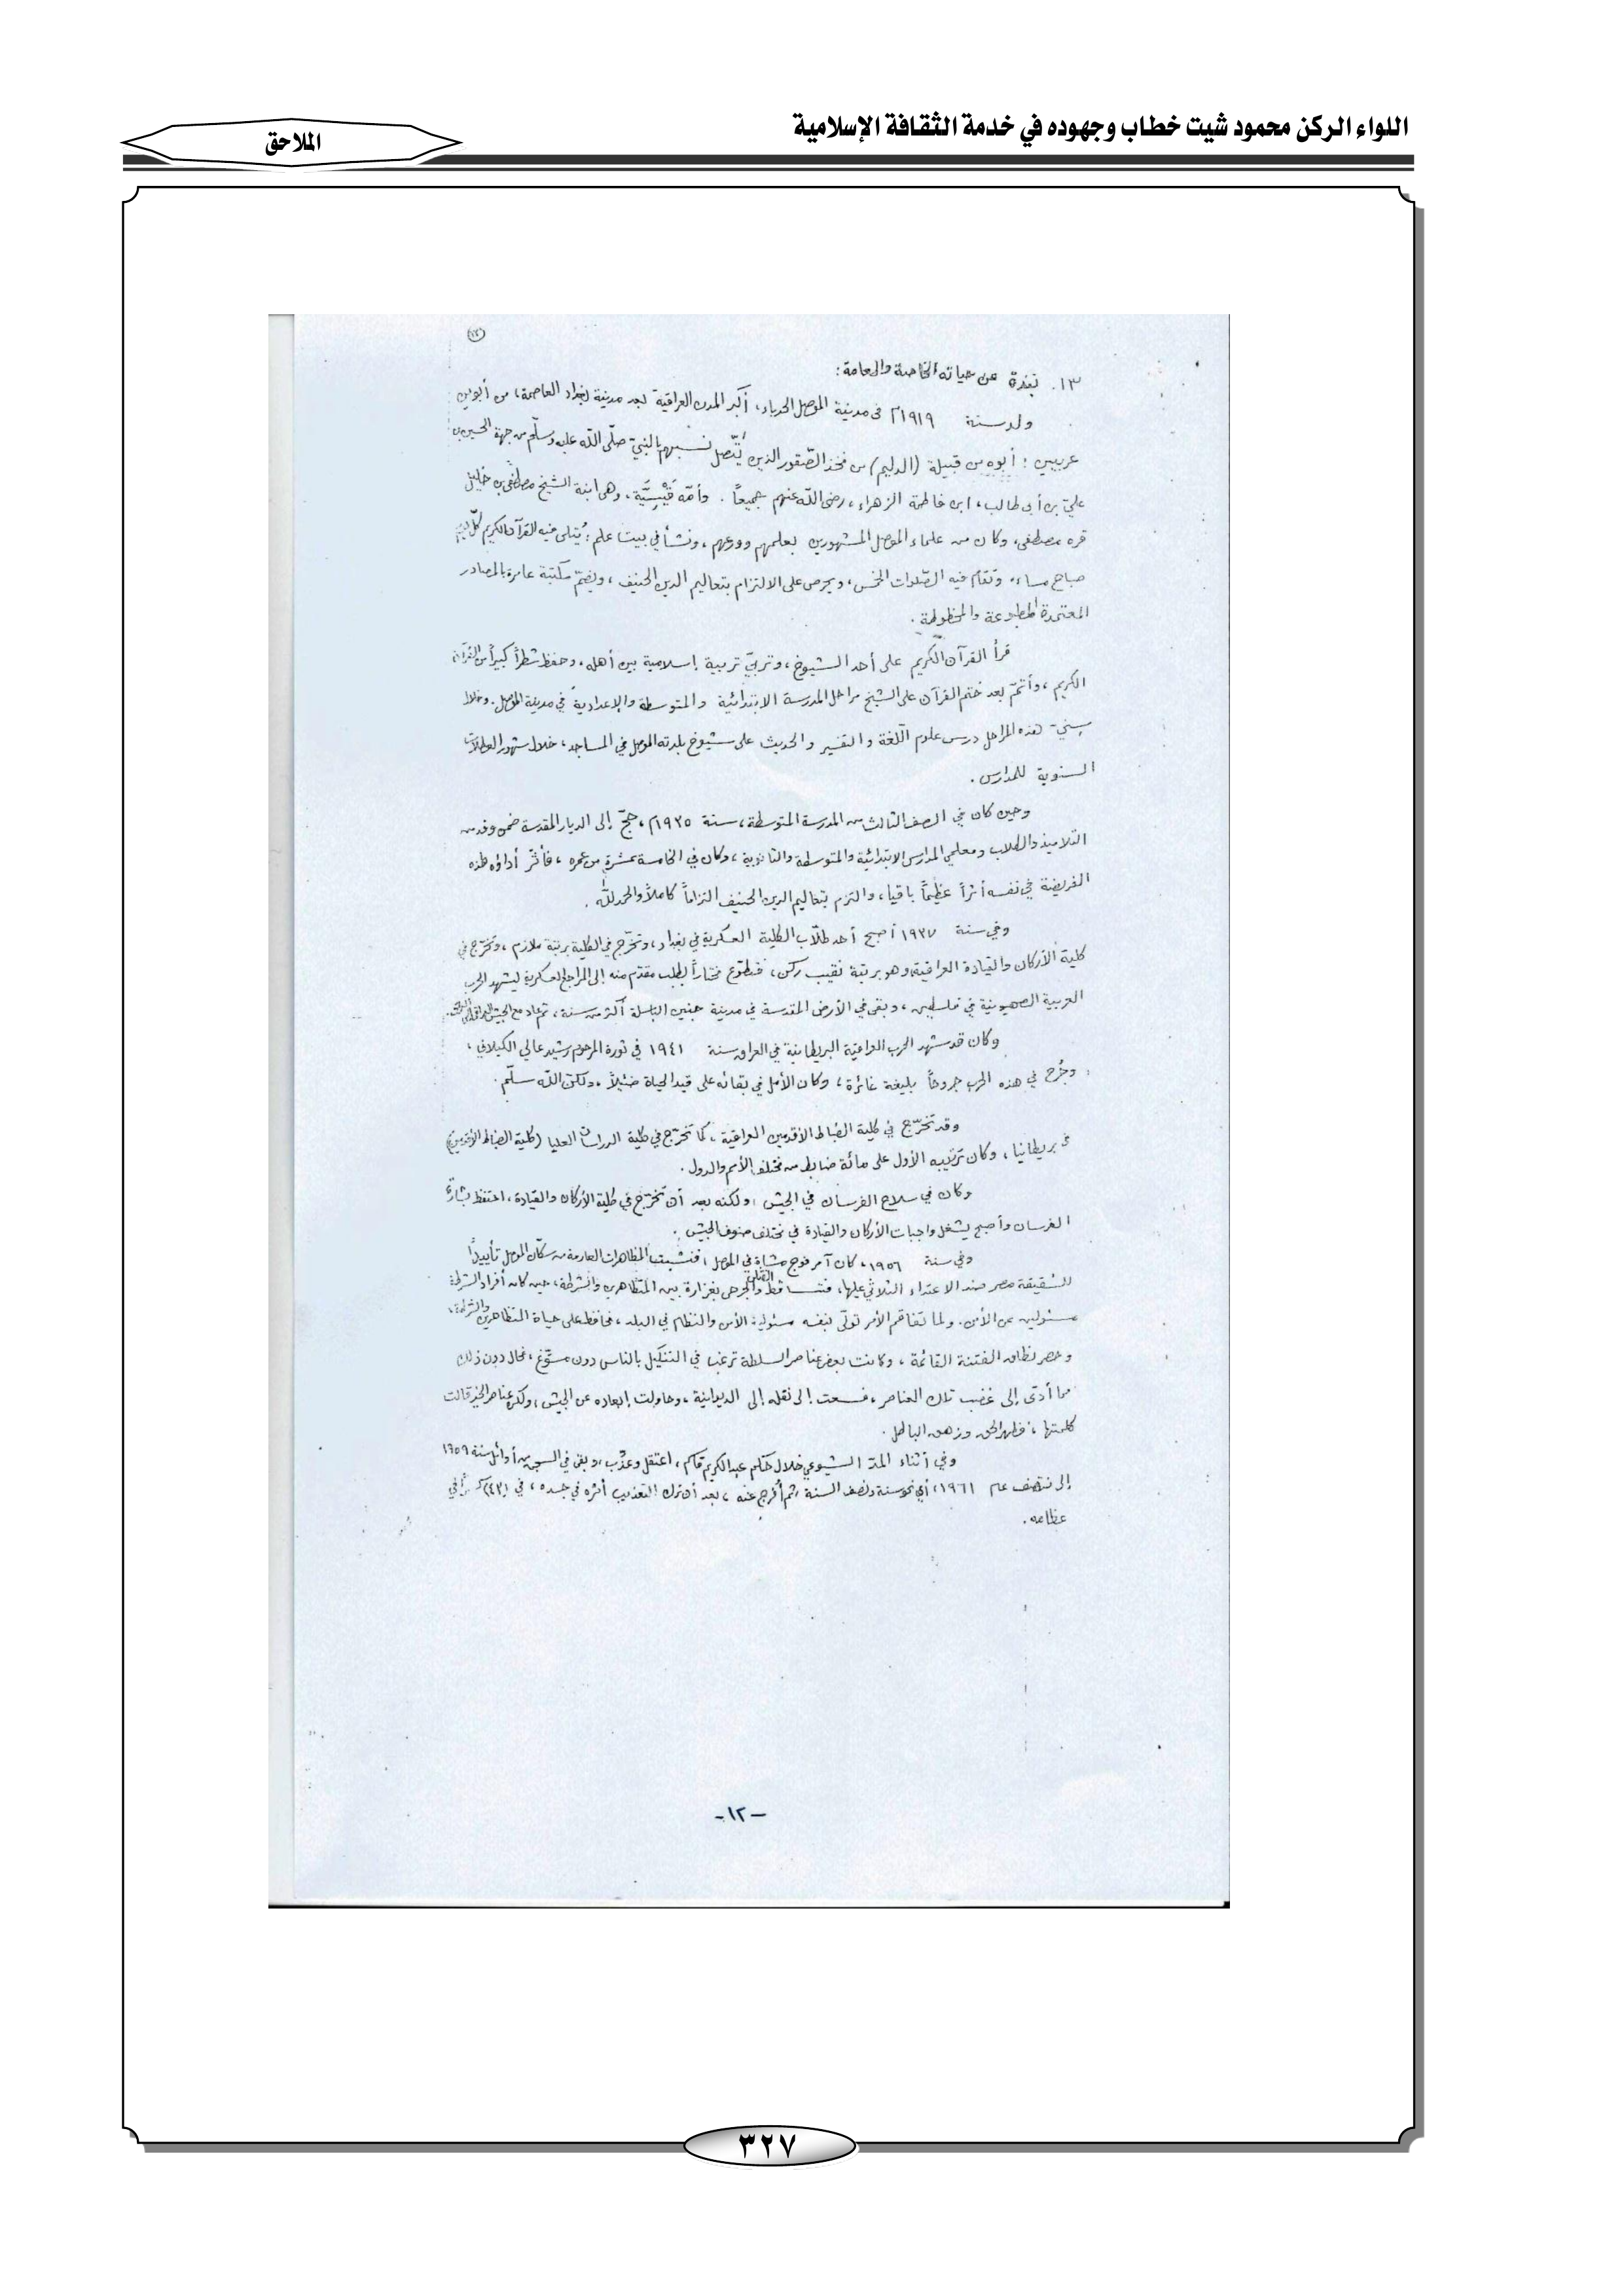 اللواء الركن محمود شيت خطاب وجهوده في خدمة الثقافة الإسلامية
الملاحق
١٣. نبذة عن حياته الخاصة والعامة:
ولد سنة ١٩١٩م في مدينة الموصل الحدباء، أكبر المدن العراقية بعد مدينة بغداد العاصمة، من أبوين
عربيين: أبوه من قبيلة (الدليم) من فخذ الصّقور الذين يتّصل نسبهم بالنبيّ صلّى الله عليه وسلّم من جهة الحسين بن
عليّ بن أبي طالب، ابن فاطمة الزهراء، رضي الله عنهم جميعاً. وأمّه قَيْسِيَّة، وهي ابنة الشيخ مصطفى بن خليل
قره مصطفى، وكان من علماء الموصل المشهورين بعلمهم وورعهم، ونشأ في بيت علم: يُتلى فيه القرآن الكريم كلّ يوم
صباح مساء، وتقام فيه الصّلوات الخمس، ويحرص على الالتزام بتعاليم الدين الحنيف، ويضمّ مكتبة عامرة بالمصادر
المعتمدة المطبوعة والمخطوطة.
قرأ القرآن الكريم على أحد الشيوخ، وتربّى تربية إسلامية بين أهله، وحفظ شطراً كبيراً من القرآن
الكريم، وأتمّ بعد ختم القرآن على الشيخ مراحل المدرسة الابتدائية والمتوسطة والإعدادية في مدينة الموصل. وخلال
سِنيّ هذه المراحل درس علوم اللّغة والتفسير والحديث على شيوخ بلدته الموصل في المساجد، خلال شهور العطلات
السنوية للمدارس.
وحين كان في الصف الثالث من المدرسة المتوسطة، سنة ١٩٣٥م، حجّ إلى الديار المقدسة ضمن وفد من
التلاميذ والطلاب ومعلمي المدارس الابتدائية والمتوسطة والثانوية، وكان في الخامسة عشرة من عمره، فأثّر أداؤه هذه
الفريضة في نفسه أثراً عظيماً باقياً، والتزم بتعاليم الدين الحنيف التزاماً كاملاً والحمد لله.
وفي سنة ١٩٣٧ أصبح أحد طلّاب الكلية العسكرية في بغداد، وتخرّج في الكلية برتبة ملازم، وتخرّج في
كلية الأركان والقيادة العراقية وهو برتبة نقيب ركن، فتطوّع مختاراً بطلب مقدّم منه إلى المراجع العسكرية ليشهد الحرب
العربية الصهيونية في فلسطين، وبقي في الأرض المقدسة في مدينة جنين الباسلة أكثر من سنة، ثم عاد مع الجيش العراقي إلى
وكان قد شهد الحرب العراقية البريطانية في العراق سنة ١٩٤١ في ثورة المرحوم رشيد عالي الكيلاني،
وجُرح في هذه الحرب جروحاً بليغة غائرة، وكان الأمل في بقائه على قيد الحياة ضئيلاً، ولكنّ الله سلّم.
وقد تخرّج في كلية الضباط الأقدمين العراقية، كما تخرّج في كلية الدراسات العليا (كلية الضباط الأقدمين)
في بريطانيا، وكان ترتيبه الأول على مائة ضابط من مختلف الأمم والدول.
وكان في سلاح الفرسان في الجيش، ولكنه بعد أن تخرّج في كلية الأركان والقيادة، احتفظ بشارة
الفرسان وأصبح يشغل واجبات الأركان والقيادة في مختلف صنوف الجيش.
وفي سنة ١٩٥٦، كان آمر فوج مشاة في الموصل، فنشبت المظاهرات العارمة من سكّان الموصل تأييداً
للشقيقة مصر ضد الاعتداء الثلاثي عليها، فتساقط القتلى والجرحى بغزارة بين المتظاهرين والشرطة، حين كان أفراد الشرطة
مسئولين عن الأمن. ولما تفاقم الأمر تولّى بنفسه مسئولية الأمن والنظام في البلد، فحافظ على حياة المتظاهرين والشرطة،
وحصر نطاق الفتنة القائمة، وكانت بعض عناصر السلطة ترغب في التنكيل بالناس دون مسوّغ، فحال دون ذلك
مما أدّى إلى غضب تلك العناصر، فسعت إلى نقله إلى الديوانية، وحاولت إبعاده عن الجيش، ولكن عناصر الخير قالت
كلمتها، فظهر الحق وزهق الباطل.
وفي أثناء المدّ الشيوعي خلال حكم عبد الكريم قاسم، اعتقل وعذّب، وبقي في السجن من أوائل سنة ١٩٥٩
إلى نتصف عام ١٩٦١، أي نحو سنة ونصف السنة، ثم أُفرج عنه، بعد أن ترك التعذيب أثره في جسده، في (٤٢) كسراً في
عظامه.
-١٢-
٣٢٧